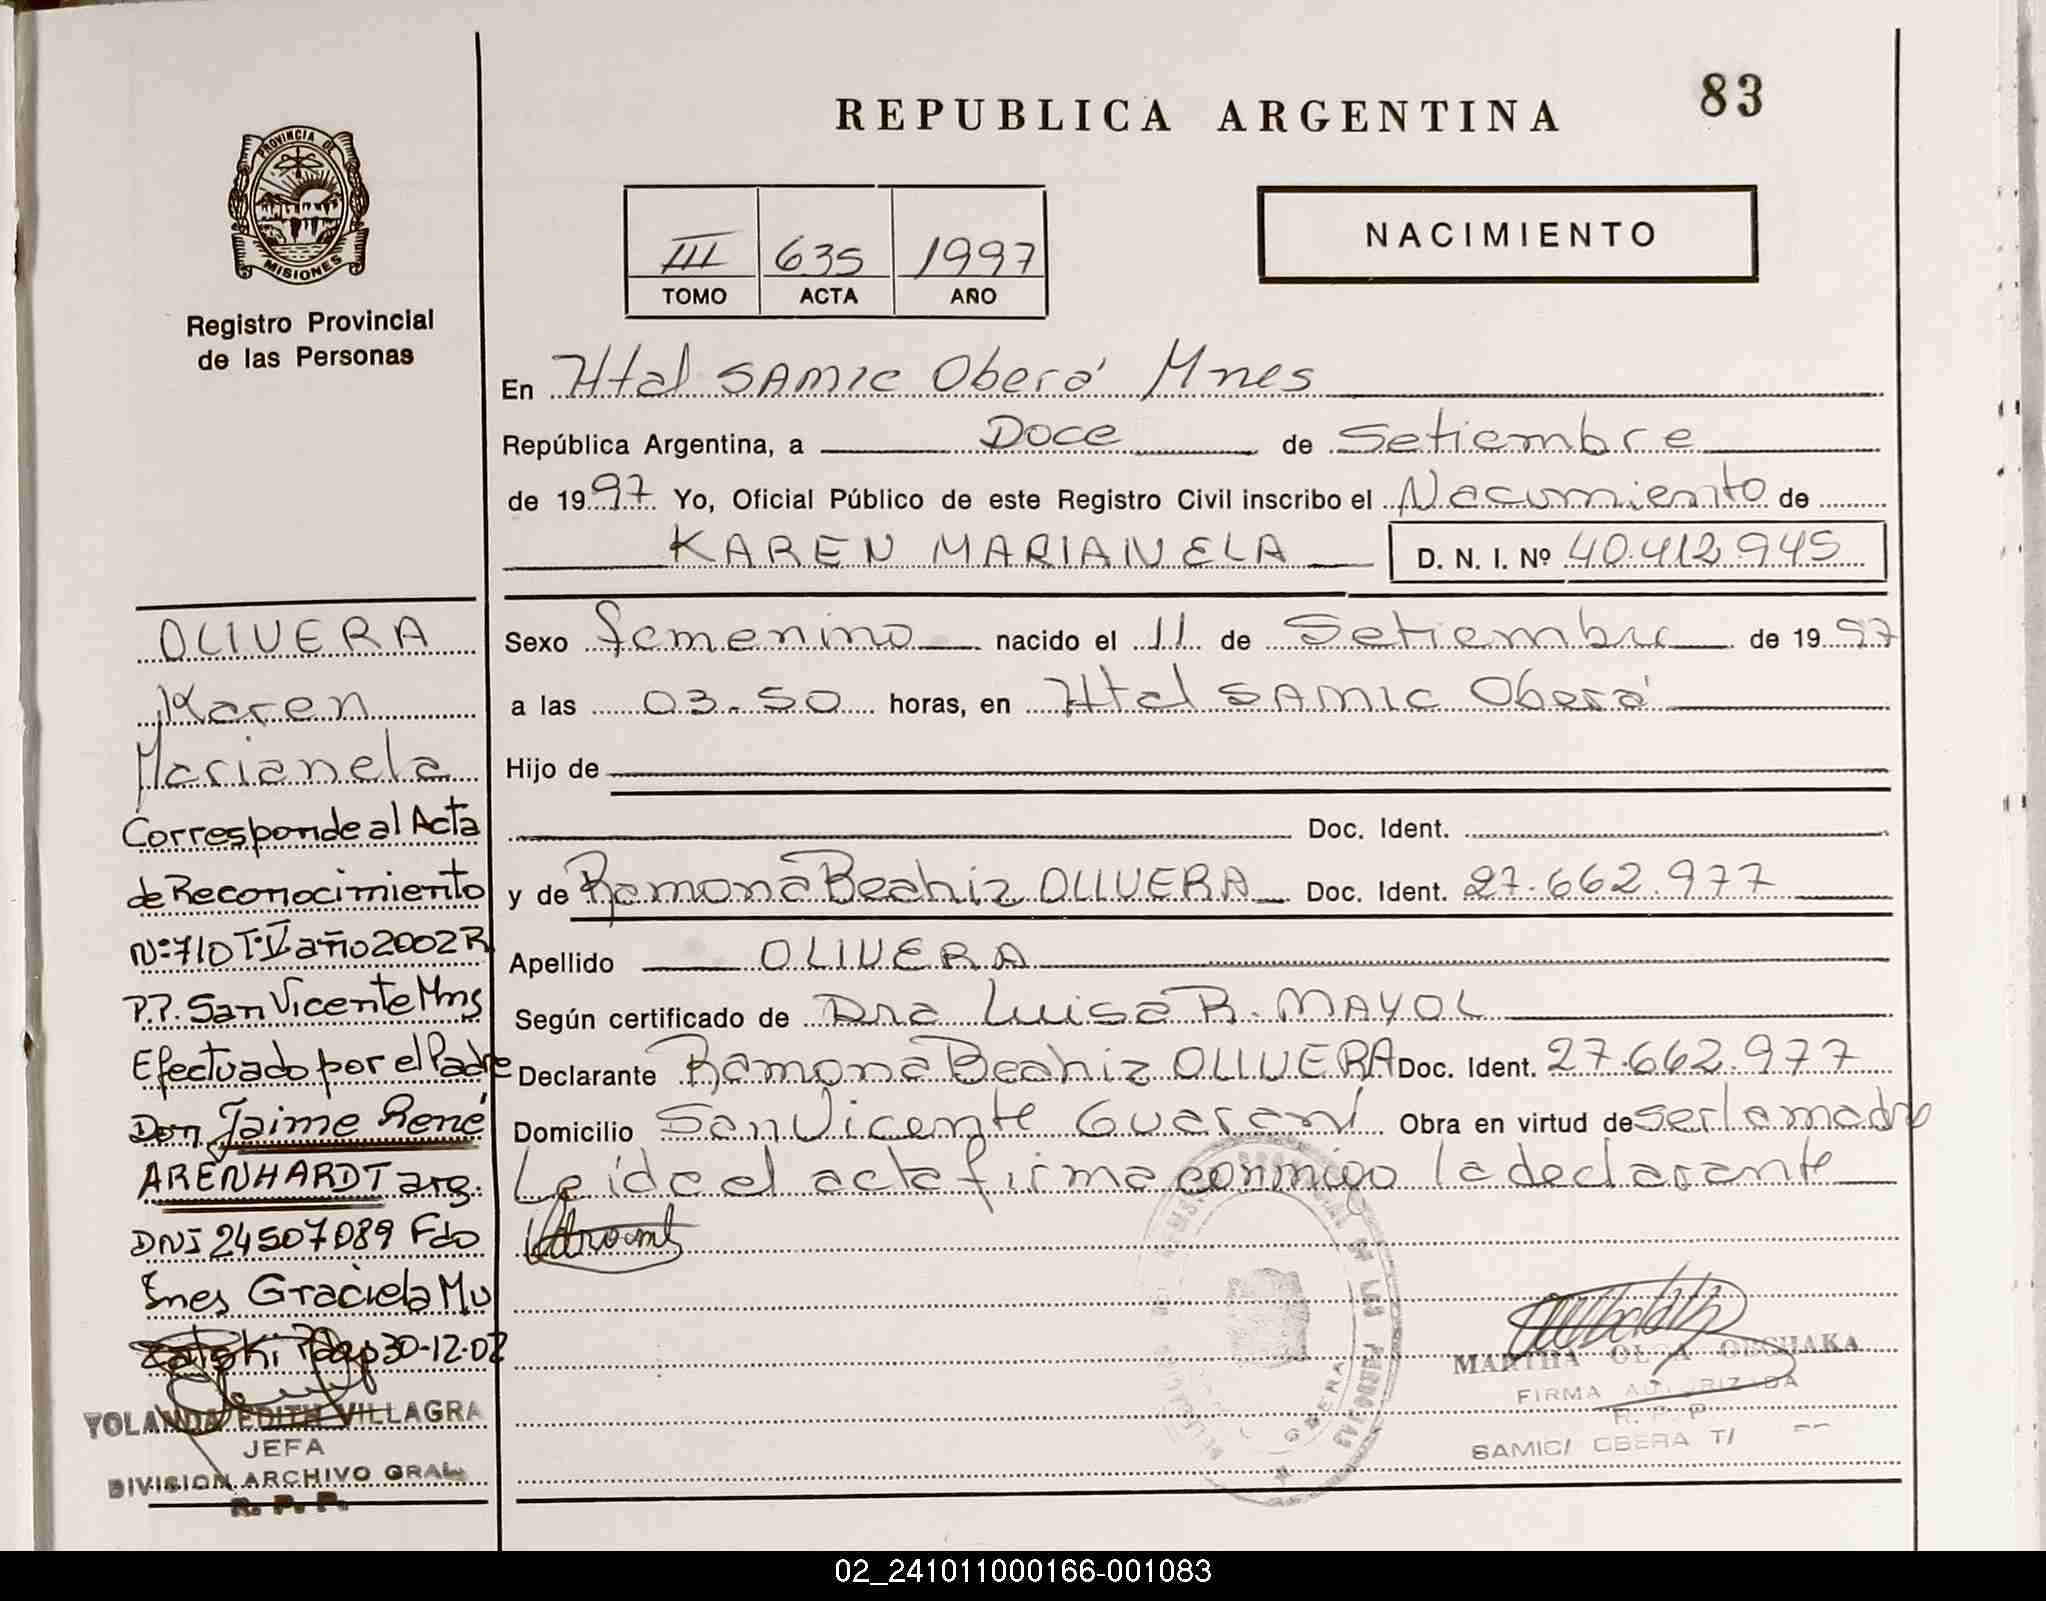 REPUBLICA ARGENTINA
83
PROVINCIA DE
MISIONES
Registro Provincial
de las Personas
III 635 1997
TOMO ACTA AÑO
NACIMIENTO
En Htal SAMIC Oberá Mnes
República Argentina, a Doce de Setiembre
de 1997 Yo, Oficial Público de este Registro Civil inscribo el Nacimiento de
KAREN MARIANELA D. N. I. Nº 40.412.945
Sexo femenino nacido el 11 de Setiembre de 1997
a las 03.50 horas, en Htal SAMIC Oberá
Hijo de
Doc. Ident.
y de Ramona Beatriz OLIVERA Doc. Ident. 27.662.977
Apellido OLIVERA
Según certificado de Dra Luisa R. MAYOL
Declarante Ramona Beatriz OLIVERA Doc. Ident. 27.662.977
Domicilio San Vicente Guaraní Obra en virtud de ser la madre
Leída el acta firma conmigo la declarante
OLIVERA
Karen
Marianela
Corresponde al Acta
de Reconocimiento
Nº 710 T.V año 2002 R
P.P. San Vicente Mns
Efectuado por el Padre
Don Jaime René
ARENHARDT arg.
DNI 24507089 Fdo
Ines Graciela Mu
zatski 30-12-02
YOLANDA EDITH VILLAGRA
JEFA
DIVISION ARCHIVO GRAL.
R. P. P.
MARTHA
FIRMA AUTORIZADA
R. P. P.
SAMIC/ OBERA
OBERA
02_241011000166-001083